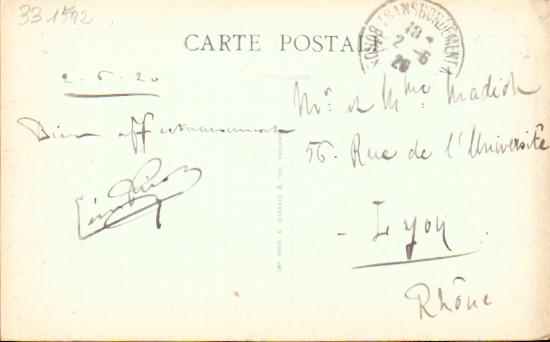 33 1592
CARTE POSTALE
TRANSBORDEMENT
19 *
2 - 6
20
2.6.20
Bien affectueusement
Mr. et Mme. Madiot
56. Rue de l'Université
- Lyon
Rhône